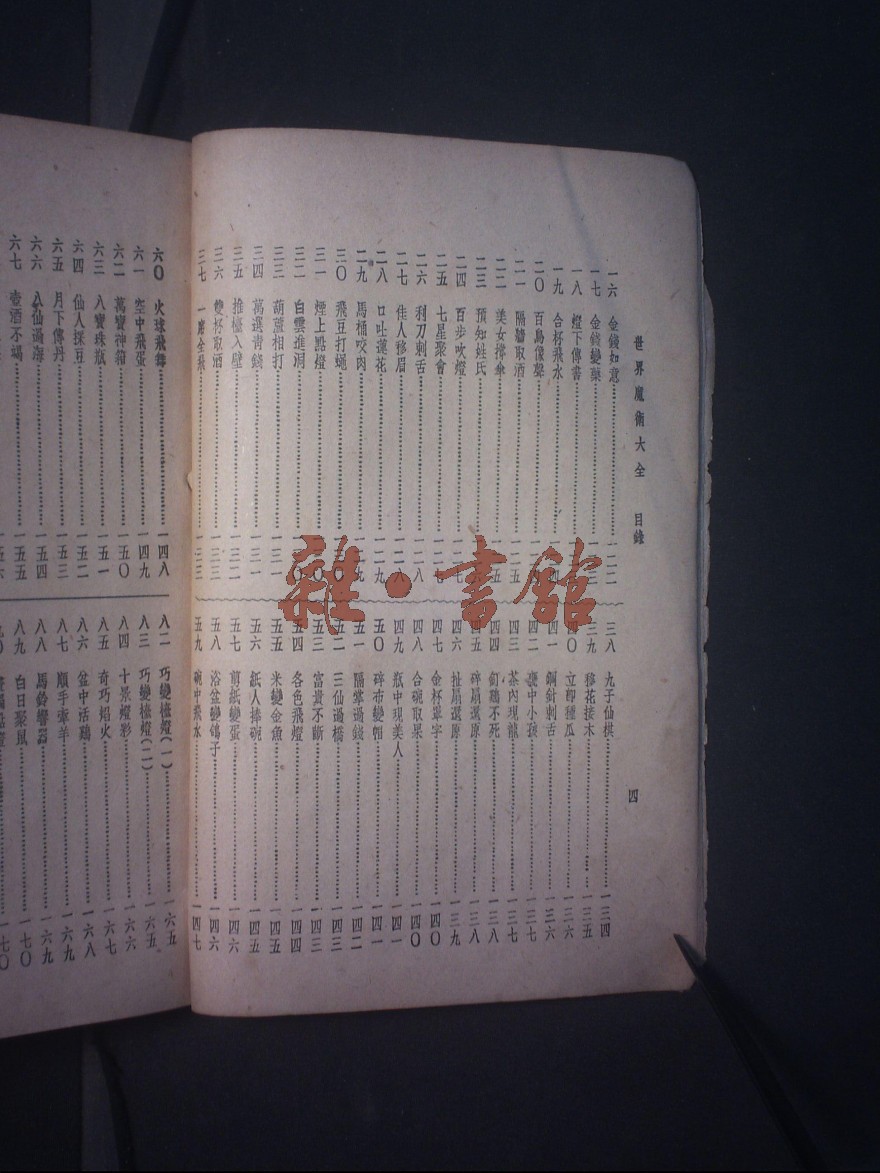 世界魔術大全 目錄
四
一六 金錢如意 一二二
一七 金錢變藥 一二三
一八 燈下傳書
一九 合杯飛水
二〇 百鳥像聲
二一 隔牆取酒 一二五
二二 美女擲傘
二三 預知姓氏
二四 百步吹燈 一二七
二五 七星聚會 一二七
二六 利刀刺舌 一二八
二七 佳人移眉 一二八
二八 口吐蓮花 一二九
二九 馬桶咬肉 一二九
三〇 飛豆打蠅 一三〇
三一 煙上點燈
三二 白雲進洞
三三 葫蘆相打 一三一
三四 萬選青錢 一三一
三五 推檯入壁 一三二
三六 雙杯取酒 一三三
三七 一席全飛 一三三
三八 九于仙棋 一三四
三九 移花接木 一三五
四〇 立卽種瓜 一三六
四一 鋼針刺舌 一三六
四二 甕中小孩 一三七
四三 茶內現龍 一三七
四四 釘鷄不死 一三八
四五 碎扇還原 一三八
四六 扯扇還原 一三九
四七 金杯單字 一四〇
四八 合碗取果 一四〇
四九 瓶中現美人 一四一
五〇 碎布變帽 一四一
五一 隔掌過錢 一四二
五二 三仙過橋 一四三
五三 富貴不斷 一四三
五四 各色飛燈 一四四
五五 米變金魚 一四五
五六 紙人捧碗 一四五
五七 剪紙變蛋 一四六
五八 浴盆變鴿子 一四六
五九 碗中飛水 一四七
六〇 火球飛舞 一四八
六一 空中飛蛋 一四九
六二 萬寶神箱 一五〇
六三 八寶珠瓶 一五一
六四 仙人採豆 一五二
六五 月下傳丹 一五三
六六 八仙過海 一五四
六七 壺酒不竭 一五五
八二 巧變檯燈(一) 一六五
八三 巧變檯燈(二) 一六五
八四 十景燈彩 一六六
八五 奇巧焰火 一六七
八六 盆中活鷄 一六八
八七 順手牽羊 一六九
八八 馬鈴響器 一六九
八九 白日聚鼠 一七〇
雜·書館